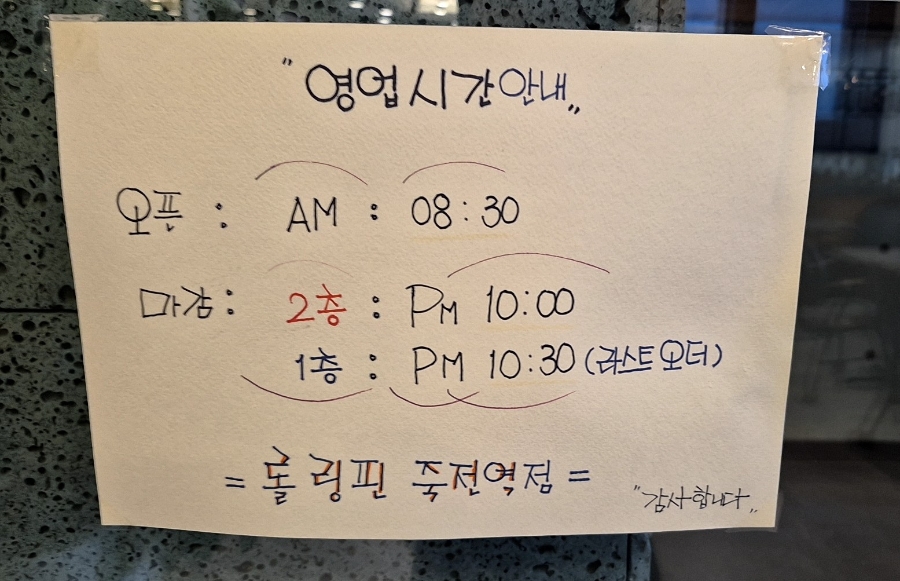 "영업시간안내"
오픈 : AM : 08:30
마감 : 2층 : PM 10:00
1층 : PM 10:30 (라스트오더)
= 롤링핀 죽전역점 =
"감사합니다"